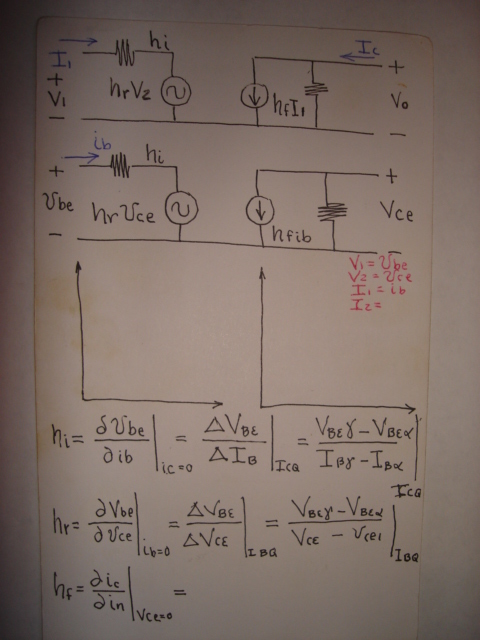 I₁ hi Ic
+ hrV₂ hfI₁ +
V₁ Vo
− −
ib hi
+ +
Vbe hrVce hfib Vce
− −
V₁ = Vbe
V₂ = Vce
I₁ = ib
I₂ =
hi = ∂Vbe/∂ib |ic=0 = ΔVBE/ΔIB |ICQ = VBEγ − VBEα/IBγ − IBα |ICQ
hr = ∂Vbe/∂Vce |ib=0 = ΔVBE/ΔVCE |IBQ = VBEγ − VBEα/VCE − VCE1 |IBQ
hf = ∂ic/∂in |Vce=0 =